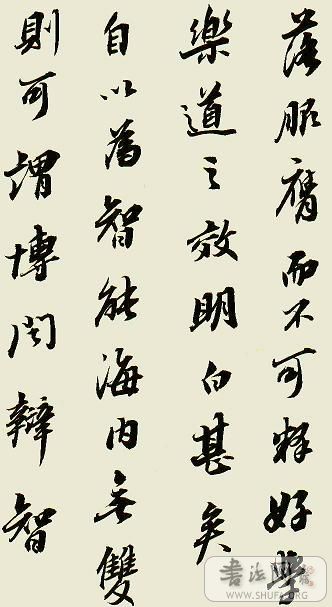 落服膺而不可釋好學
樂道之效明白甚矣
自以為智能海内無雙
則可謂博聞辯智
書法
WWW.SHUFA.ORG